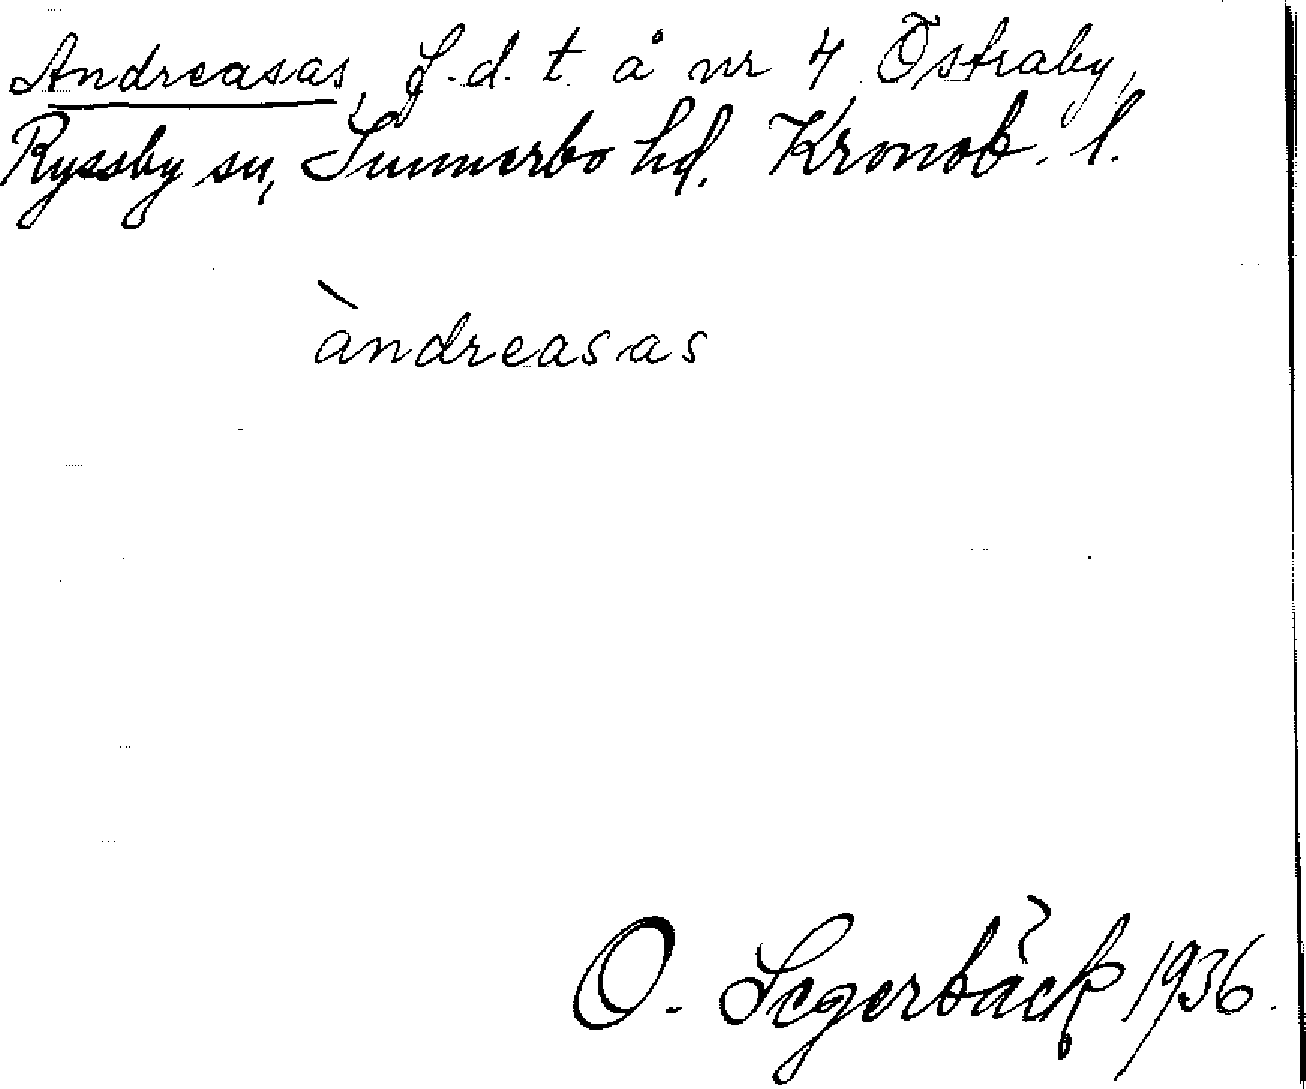 Andreasas, f.d. t. å nr 4 Östraby,
Ryssby sn, Sunnerbo hd. Kronob. l.
àndreasas
O. Segerbäck 1936.